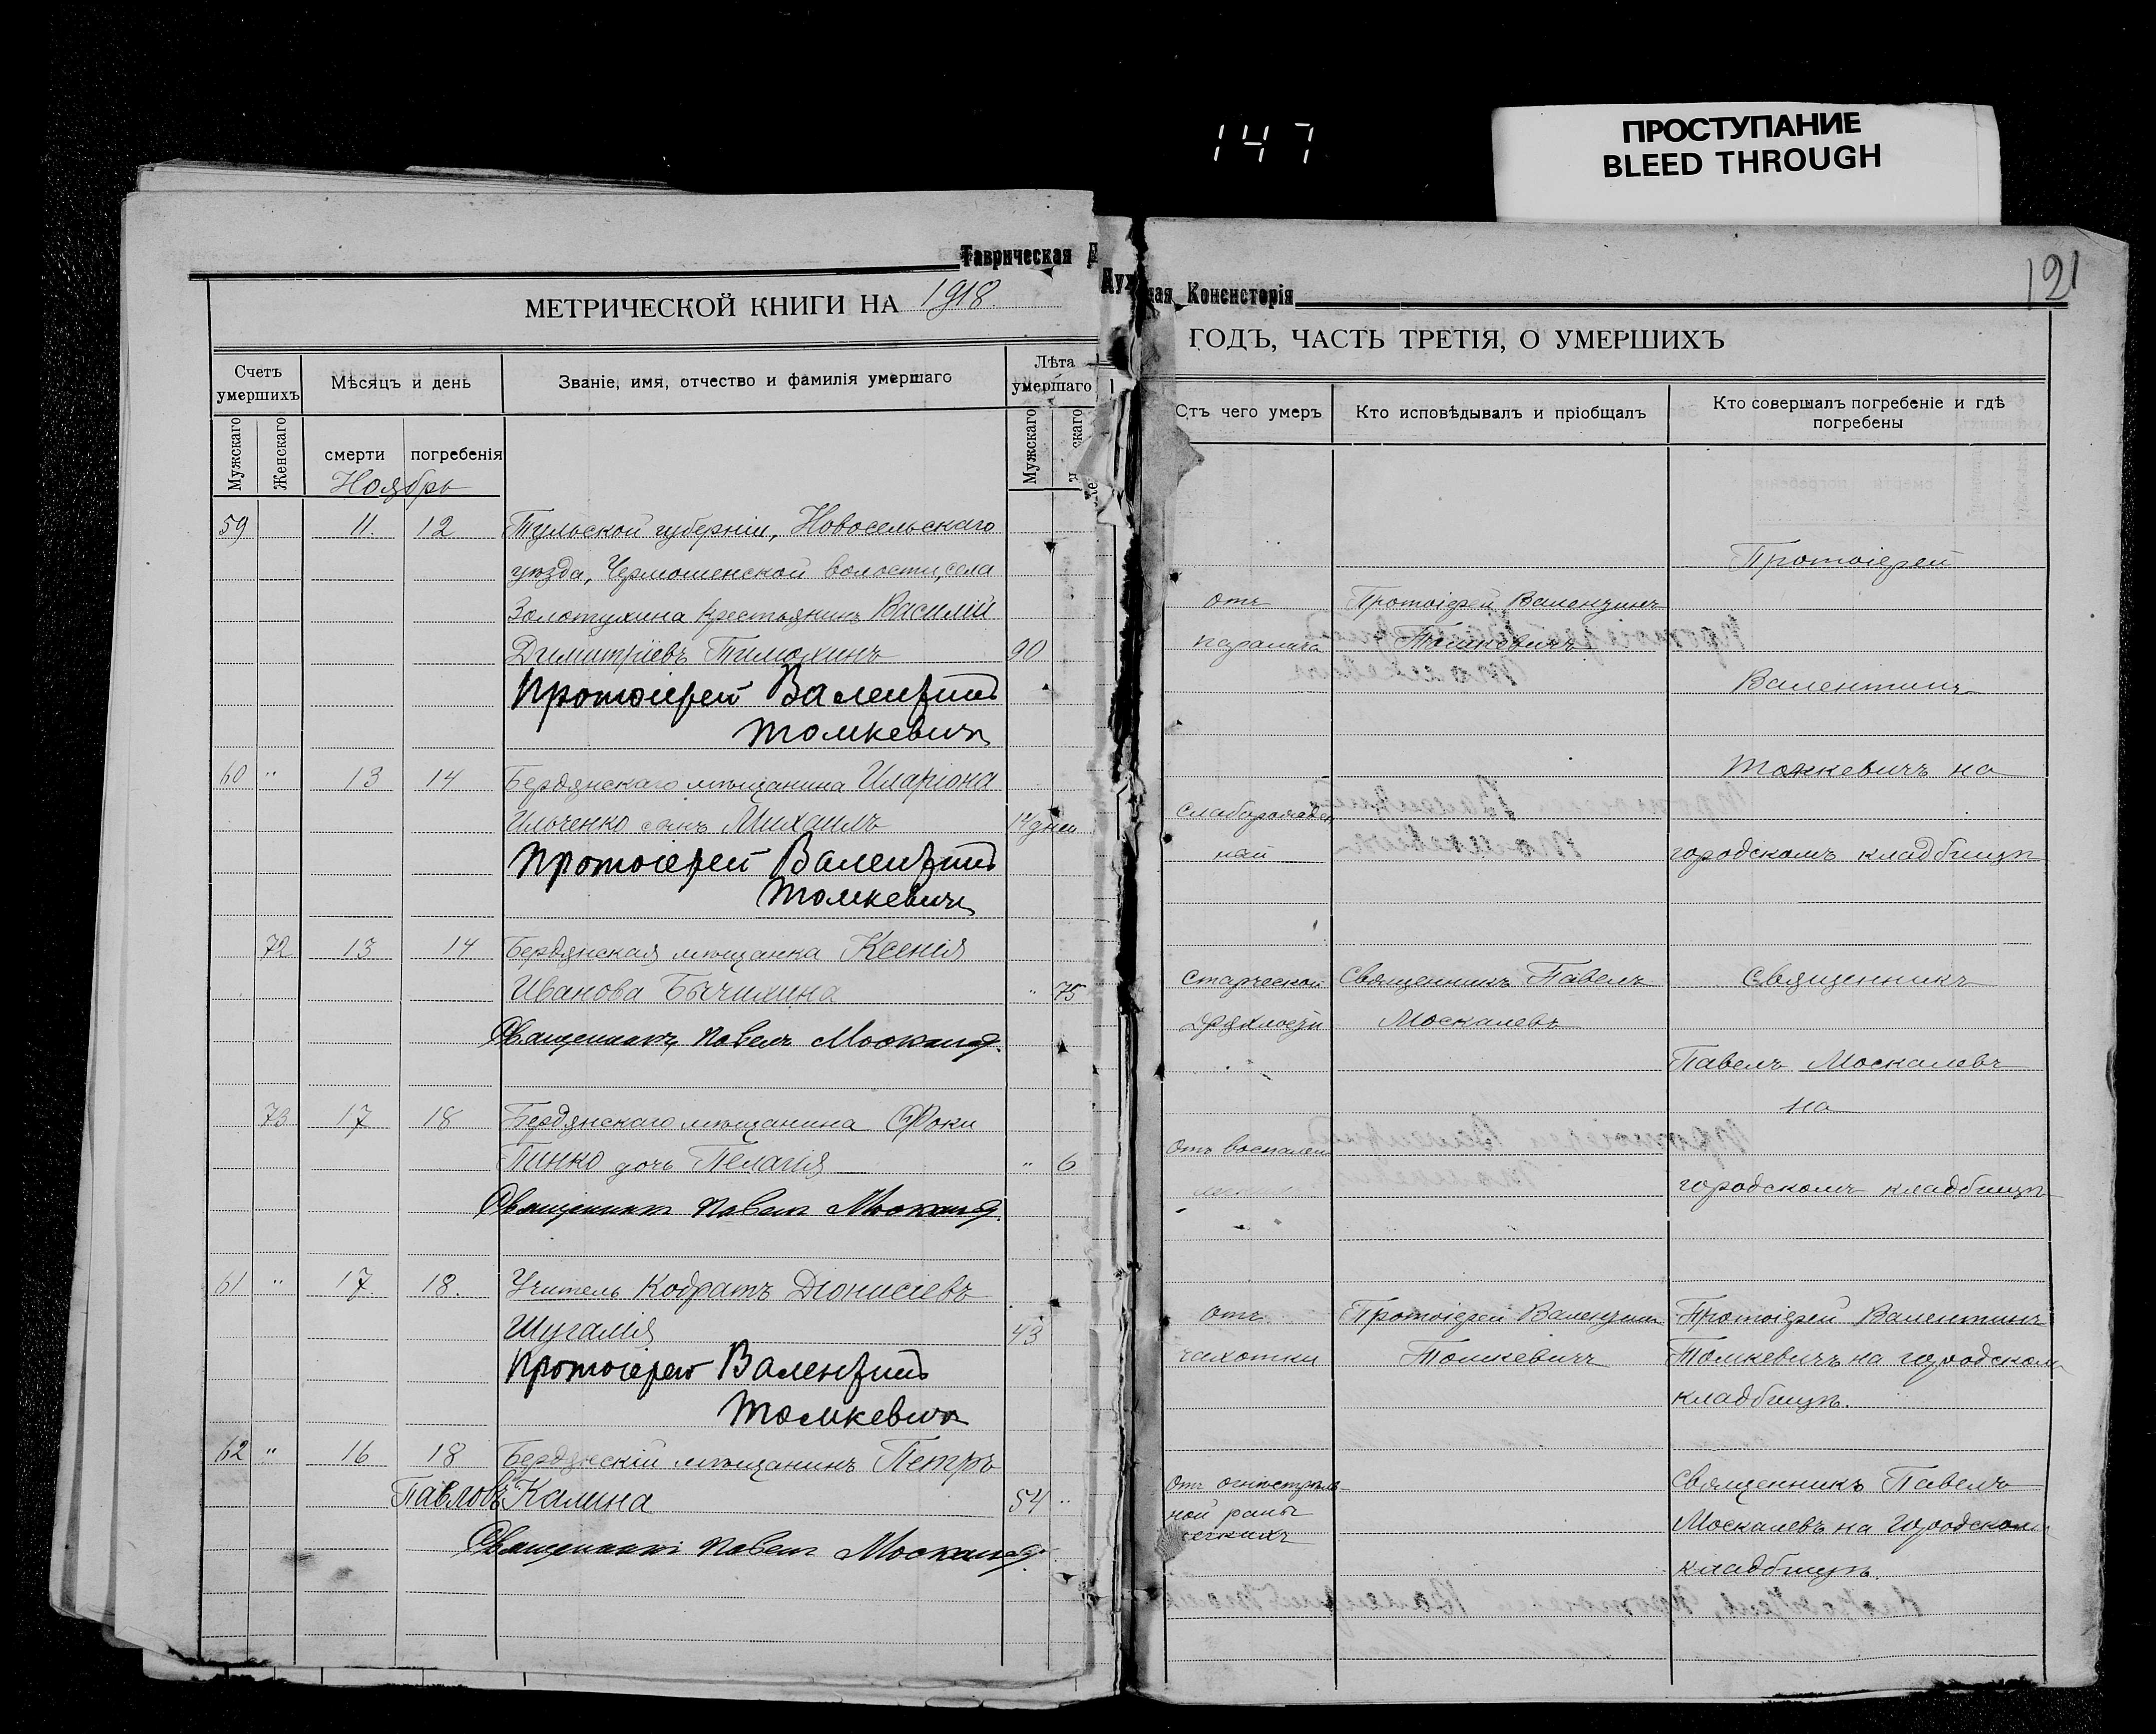 147
ПРОСТУПАНИЕ
BLEED THROUGH
Таврическая Д
Дух
ная Консисторія
121
МЕТРИЧЕСКОЙ КНИГИ НА 1918
ГОДЪ, ЧАСТЬ ТРЕТІЯ, О УМЕРШИХЪ
Счетъ умершихъ
Мѣсяцъ и день
Званіе, имя, отчество и фамилія умершаго
Лѣта умершаго
Мужскаго
Женскаго
смерти
погребенія
Мужскаго
скаго
Ноябрь
59 11. 12 Тульской губерніи, Новосельскаго
уѣзда, Чермошенской волости, села
Золотухина крестьянинъ Василій
Димитріевъ Тимохинъ 90
Протоіерей Валентинъ
Томкевичъ
60 " 13 14 Бердянскаго мѣщанина Иларіона
Ильченко сынъ Михаилъ дней
Протоіерей Валентинъ
Томкевичъ
72 13 14 Бердянская мѣщанка Ксенія
Иванова Бычихина " 75
Священникъ Павелъ Москалевъ
73 17 18 Бердянскаго мѣщанина Фоки
Пинко дочь Пелагія " 6
Священникъ Павелъ Москалевъ
61 " 17 18. Учитель Кодратъ Діонисіевъ
Шугалія 43
Протоіерей Валентинъ
Томкевичъ
62 " 16 18 Бердянскій мѣщанинъ Петръ
Павловъ Калина 54 "
Священникъ Павелъ Москалевъ
Отъ чего умеръ
Кто исповѣдывалъ и пріобщалъ
Кто совершалъ погребеніе и гдѣ
погребены
Протоіерей
отъ Протоіерей Валентинъ
паралича Томкевичъ
Валентинъ
Томкевичъ на
слаборожден
ный городскомъ кладбищѣ
старческой Священникъ Павелъ Священникъ
дряхлости Москалевъ
Павелъ Москалевъ
на
Отъ воспален
городскомъ кладбищѣ
отъ Протоіерей Валентинъ Протоіерей Валентинъ
чахотки Томкевичъ Томкевичъ на городском
кладбищѣ.
Священникъ Павелъ
От огнестрѣль
ной раны Москалевъ на городском
легкихъ
кладбищѣ.